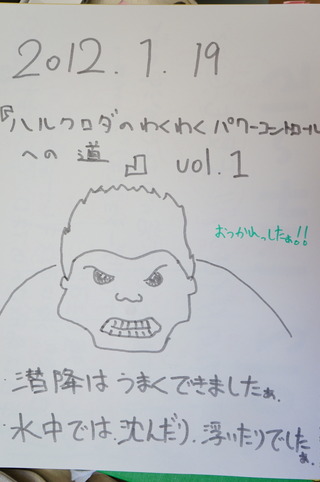 2012.1.19
『ハルクロダのわくわくパワーコントロール
への道』 vol.1
おつかれっしたぁ!!
潜降はうまくできましたぁ。
水中では、沈んだり、浮いたりでしたぁ。